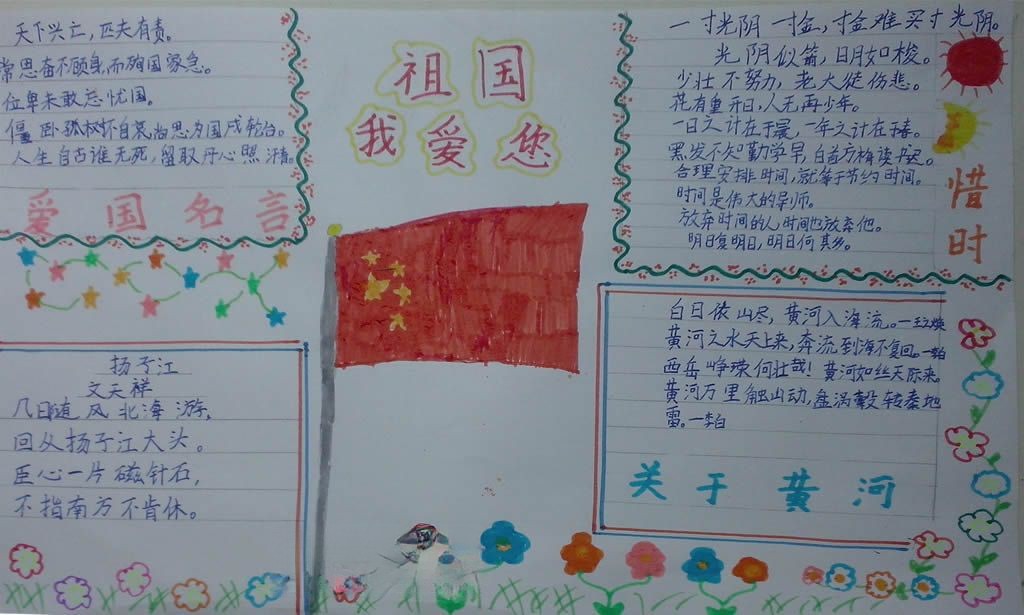 天下兴亡，匹夫有责。
常思奋不顾身，而殉国家急。
位卑未敢忘忧国。
僵卧孤村不自哀，尚思为国戍轮台。
人生自古谁无死，留取丹心照汗青。
爱国名言
祖国
我爱您
一寸光阴一寸金，寸金难买寸光阴。
光阴似箭，日月如梭。
少壮不努力，老大徒伤悲。
花有重开日，人无再少年。
一日之计在于晨，一年之计在于春。
黑发不知勤学早，白首方悔读书迟。
合理安排时间，就等于节约时间。
时间是伟大的导师。
放弃时间的人时间也放弃他。
明日复明日，明日何其多。
惜时
扬子江
文天祥
几日随风北海游，
回从扬子江大头。
臣心一片磁针石，
不指南方不肯休。
白日依山尽，黄河入海流。—王之焕
黄河之水天上来，奔流到海不复回。—李白
西岳峥嵘何壮哉！黄河如丝天际来。
黄河万里触山动，盘涡毂转秦地
雷。—李白
关于黄河